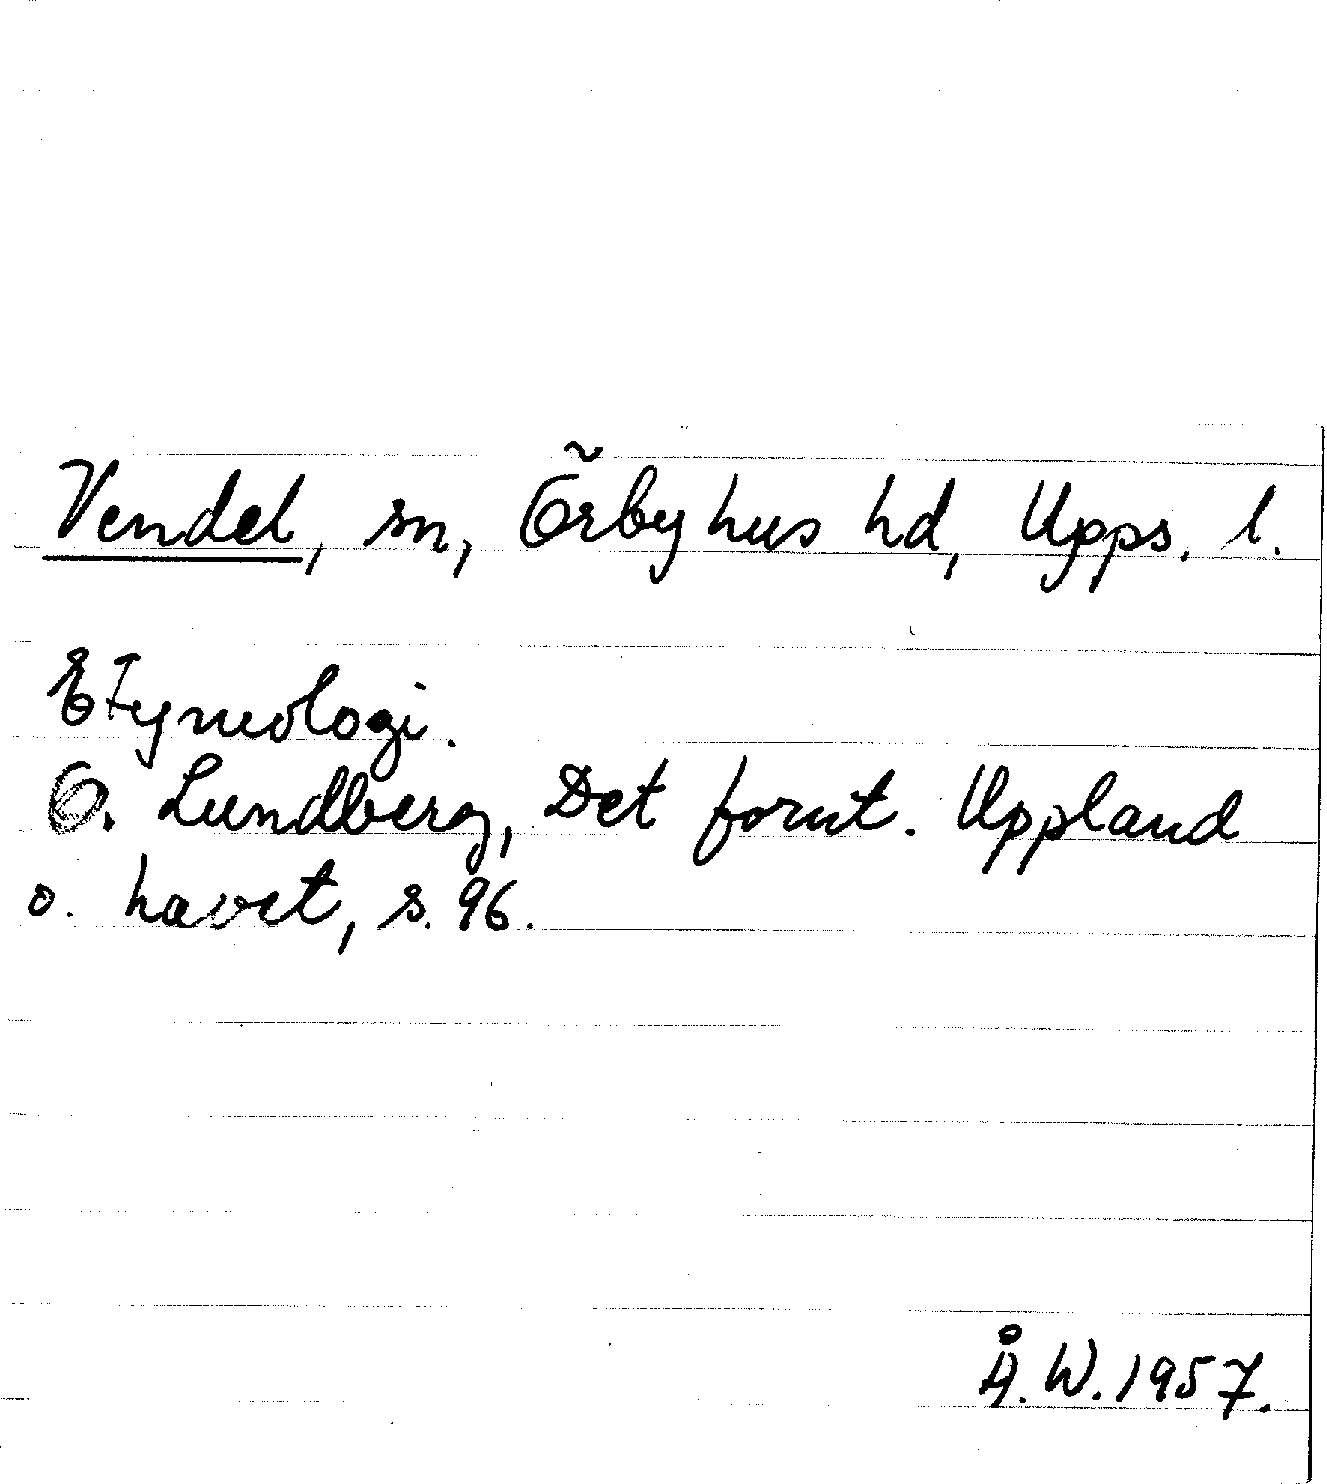 Vendel, sn, Örbyhus hd, Upps. l.
Etymologi.
O. Lundberg, Det fornt. Uppland
o. havet, s. 96.
Å. W. 1957.